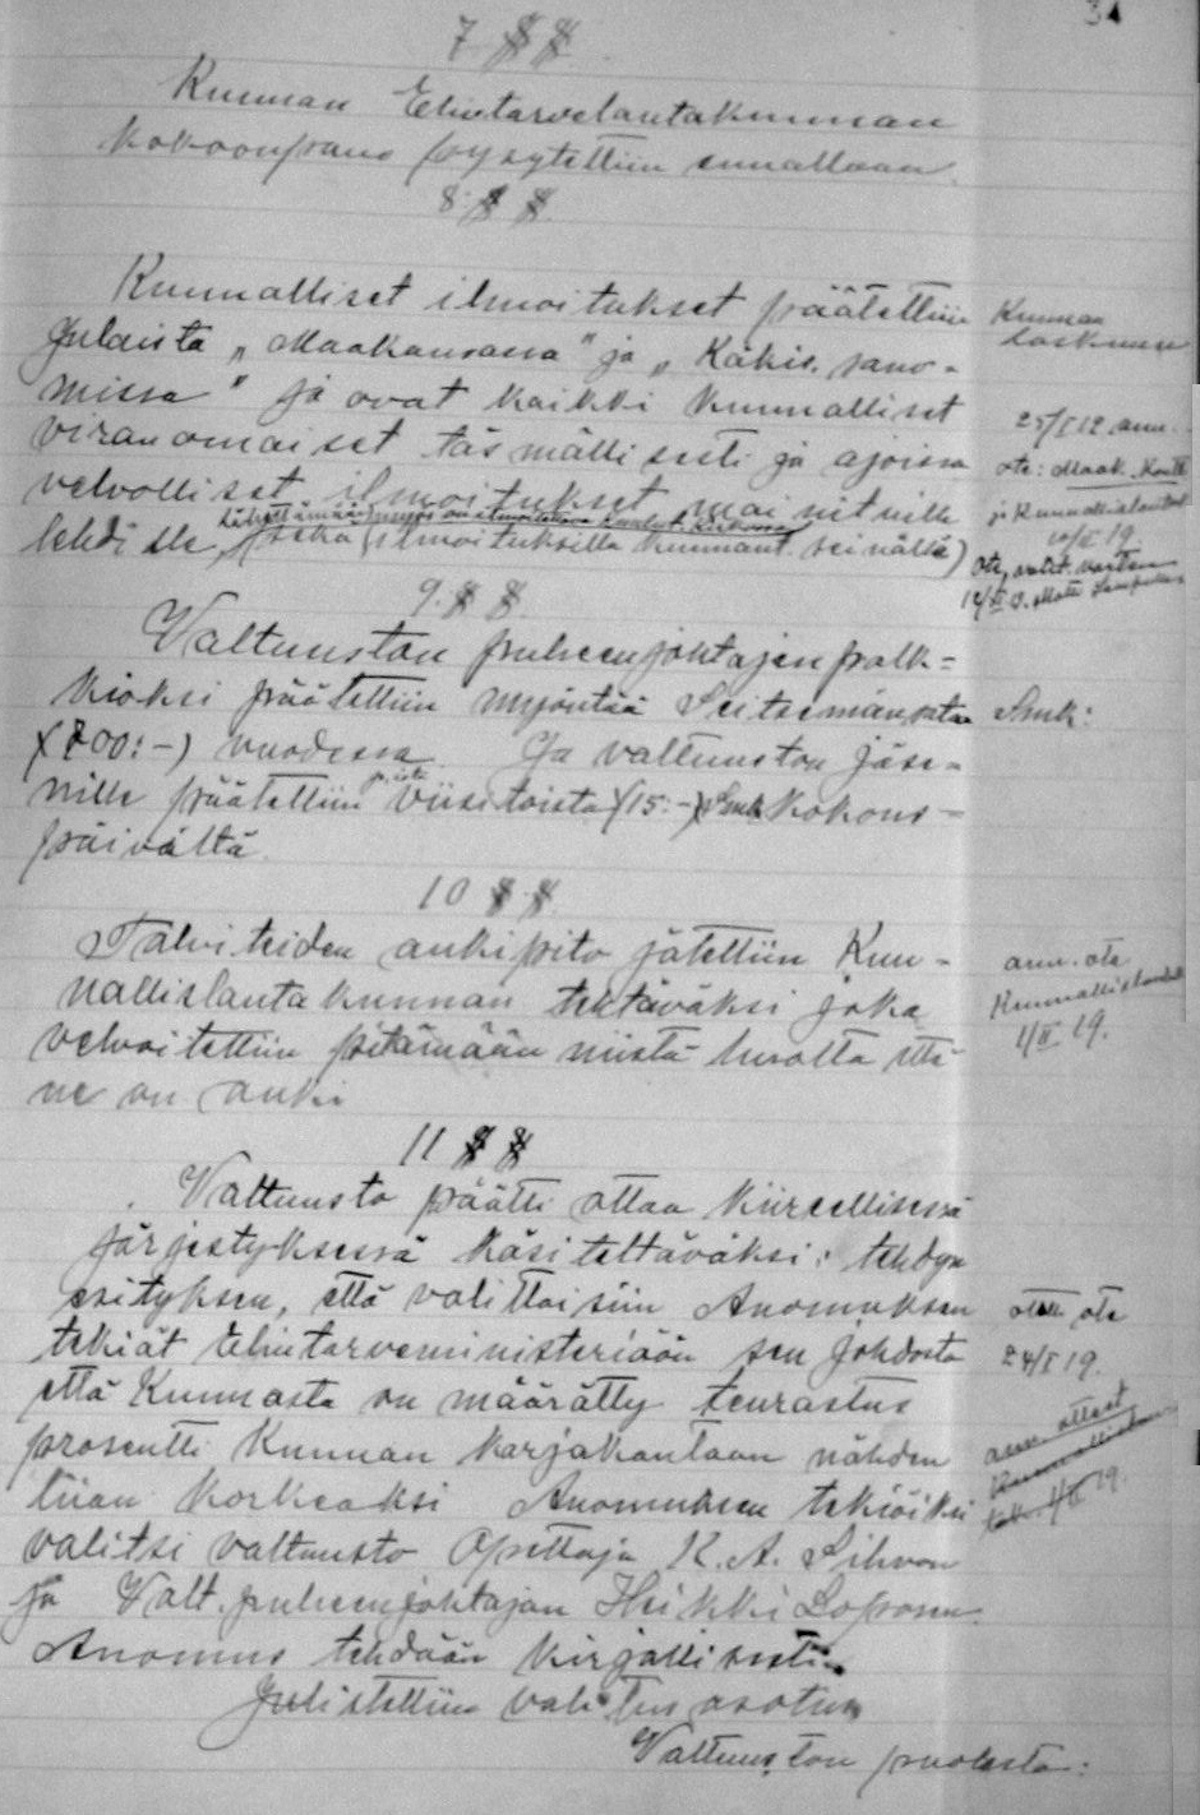 34
7 §§
Kunnan Elintarvelautakunnan
kokoonpano pysytettiin ennallaan.
8 §§
Kunnalliset ilmoitukset päätettiin
Julaista „Maakansassa" ja „Käkis. sano-
missa" ja ovat kaikki kunnalliset
viranomaiset täsmällisesti ja ajoissa
velvolliset ilmoitukset mainituille
lehdille lähettämään
(sekä ilmoituksilla kunnant. seinällä)
Kunnan
laskuun
25/I 19 ann.
ote: Maak. Kontt
ja Kunnallislautak
10/II 19.
9. §§
Valtuuston puheenjohtajan palk-
kioksi päätettiin myöntää Seitsemänsataa Smk:
(700:-) vuodessa. Ja valtuuston jäse-
nille päätettiin viisitoista (15:-) Smk kokous-
päivältä.
10 §§
Talviteiden aukipito jätettiin Kun-
nallislautakunnan tehtäväksi joka
velvoitettiin pitämään niistä huolta että
ne on auki
ann. ote
Kunnallislautak
1/II 19.
11 §§
Valtuusto päätti ottaa kiireellisessä
järjestyksessä käsiteltäväksi: tehdyn
esityksen, että valittaisiin Anomuksen
tekiät elintarveministeriöön sen johdosta
että Kunnasta on määrätty teurastus
prosentti Kunnan karjakantaan nähden
liian korkeaksi Anomuksen tekiöiksi
valitsi valtuusto Opettaja K. A. Sihvon
ja Valt. puheenjohtajan Heikki Loposen.
Anomus tehdään kirjallisesti.
ote
24/I 19.
ann. otteet
1/II 19.
Julistettiin valitus osotus
Valtuuston puolesta: